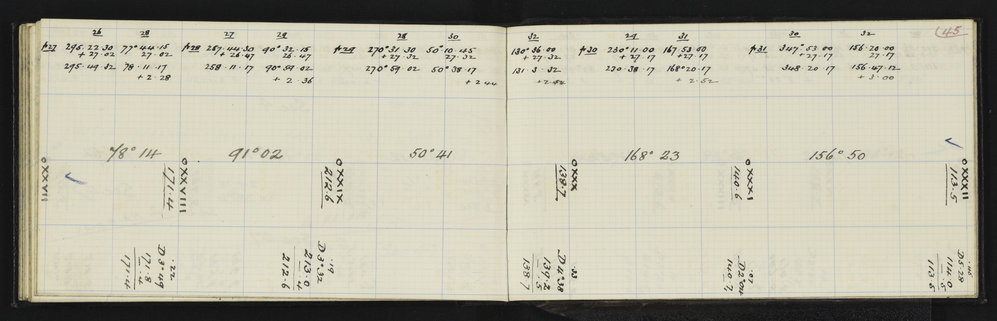 45
26 28 27 28 28 30 32 29 31 30 32
p27 295.22.30 77°44.15 p28 257.44.30 90°32.15 p29 270°31.30 50°10.45 130°36.00 p30 230°11.00 167.53.00 p31 347°53.00 156.20.00
+27.02 27.02 +26.47 26.47 +27.32 27.32 +27.32 +27.17 +27.17 +27.17 27.17
295.49.32 78.11.17 258.11.17 90°59.02 270°59.02 50°38.17 131.3.32 230.38.17 168°20.17 348.20.17 156.47.12
+2.28 +2.36 +2.44 +2.52 +3.00
78°14 91°02 50°41 168°23 156°50
XXVII
XXVIII
171.4
XXIX
212.6
XXX
138.7
XXXI
140.6
XXXII
113.5
.22
D3°49
171.8
.4
171.4
.19
D3°32
213.0
.4
212.6
.33
D4°38
139.2
.5
138.7
.07
140.7
D5.28
114.0
.5
113.5